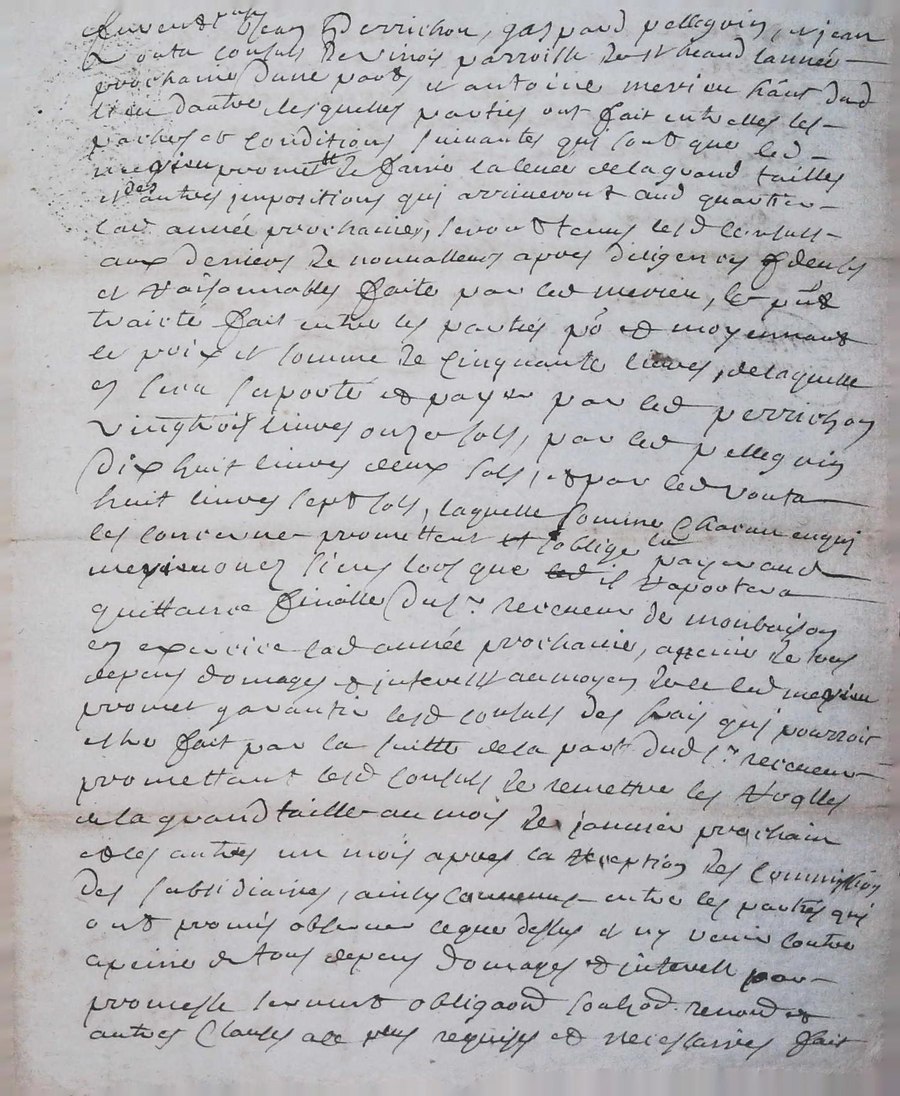 jean Perrichon, gaspard pelleguin, et jean
Routa consuls de vinols parroisse de st heand lannée
prochaine dune part, et antoine merieu
dautre lesquelles parties ont fait entrelles les
paches et conditions suivantes qui sont que led
merieu promet de faire la leuée de la grand tailles
et des autres jmpositions qui arriueront aud quartier
lad année prochaine, seront tenus lesd consuls
aux deniers de nouualleurs apres diligences
et raisonnables faite par led merieu, le pnt
traicté fait entre les parties po et moyennant
le prix et somme de cinquante liures, de laquelle
en sera suporté et payer par led perrichon
vingtrois liures onze sols, par led pelleguin
dix huit liures deux sols, et par led routa
huit liures sept sols, laquelle somme chacun en qui
les concerne promettent et soblige
payer aud
merieu lors que led il raportera
quittance finalle du sr receueur de monbrison
en exercice lad année prochaine, a peine de tous
depens domages et interest au moyen de ce led merieu
promet garantir lesd consuls des frais qui pourroit
estre fait par la suitte de la part dud sr receueur
promettant lesd consuls de remettre les rolles
de la grand taille au mois de januier prochain
et les autres un mois apres la reception des commission
des subsidiaires, ainsy conuenu entre les parties qui
ont promis obseruer ce que dessus et ny venir contre
a peine de tous depens domages et interest par
promesse serment obligaond soubzond renond et
autres clauses a ce requises et necessaires fait